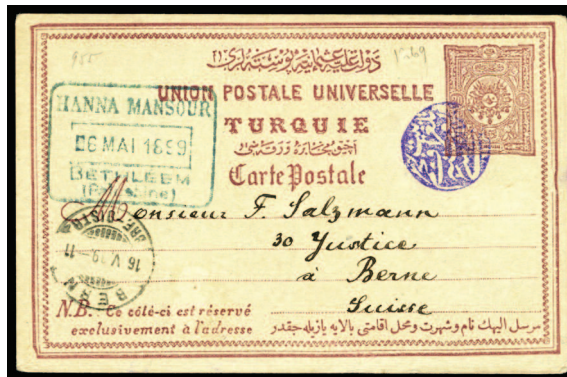 955
دولت عليۀ عثمانيه پوسته لری
UNION POSTALE UNIVERSELLE
TURQUIE
Carte Postale
HANNA MANSOUR
06 MAI 1899
BETHLEEM
(Palestine)
Monsieur F. Salzmann
30 Justice
à Berne
Suisse
16 V. 99 - 11
BERN
N.B. Ce côté-ci est réservé
exclusivement à l'adresse
مرسل اليهك نام و شهرت و محل اقامتی بالايه يازيله جقدر